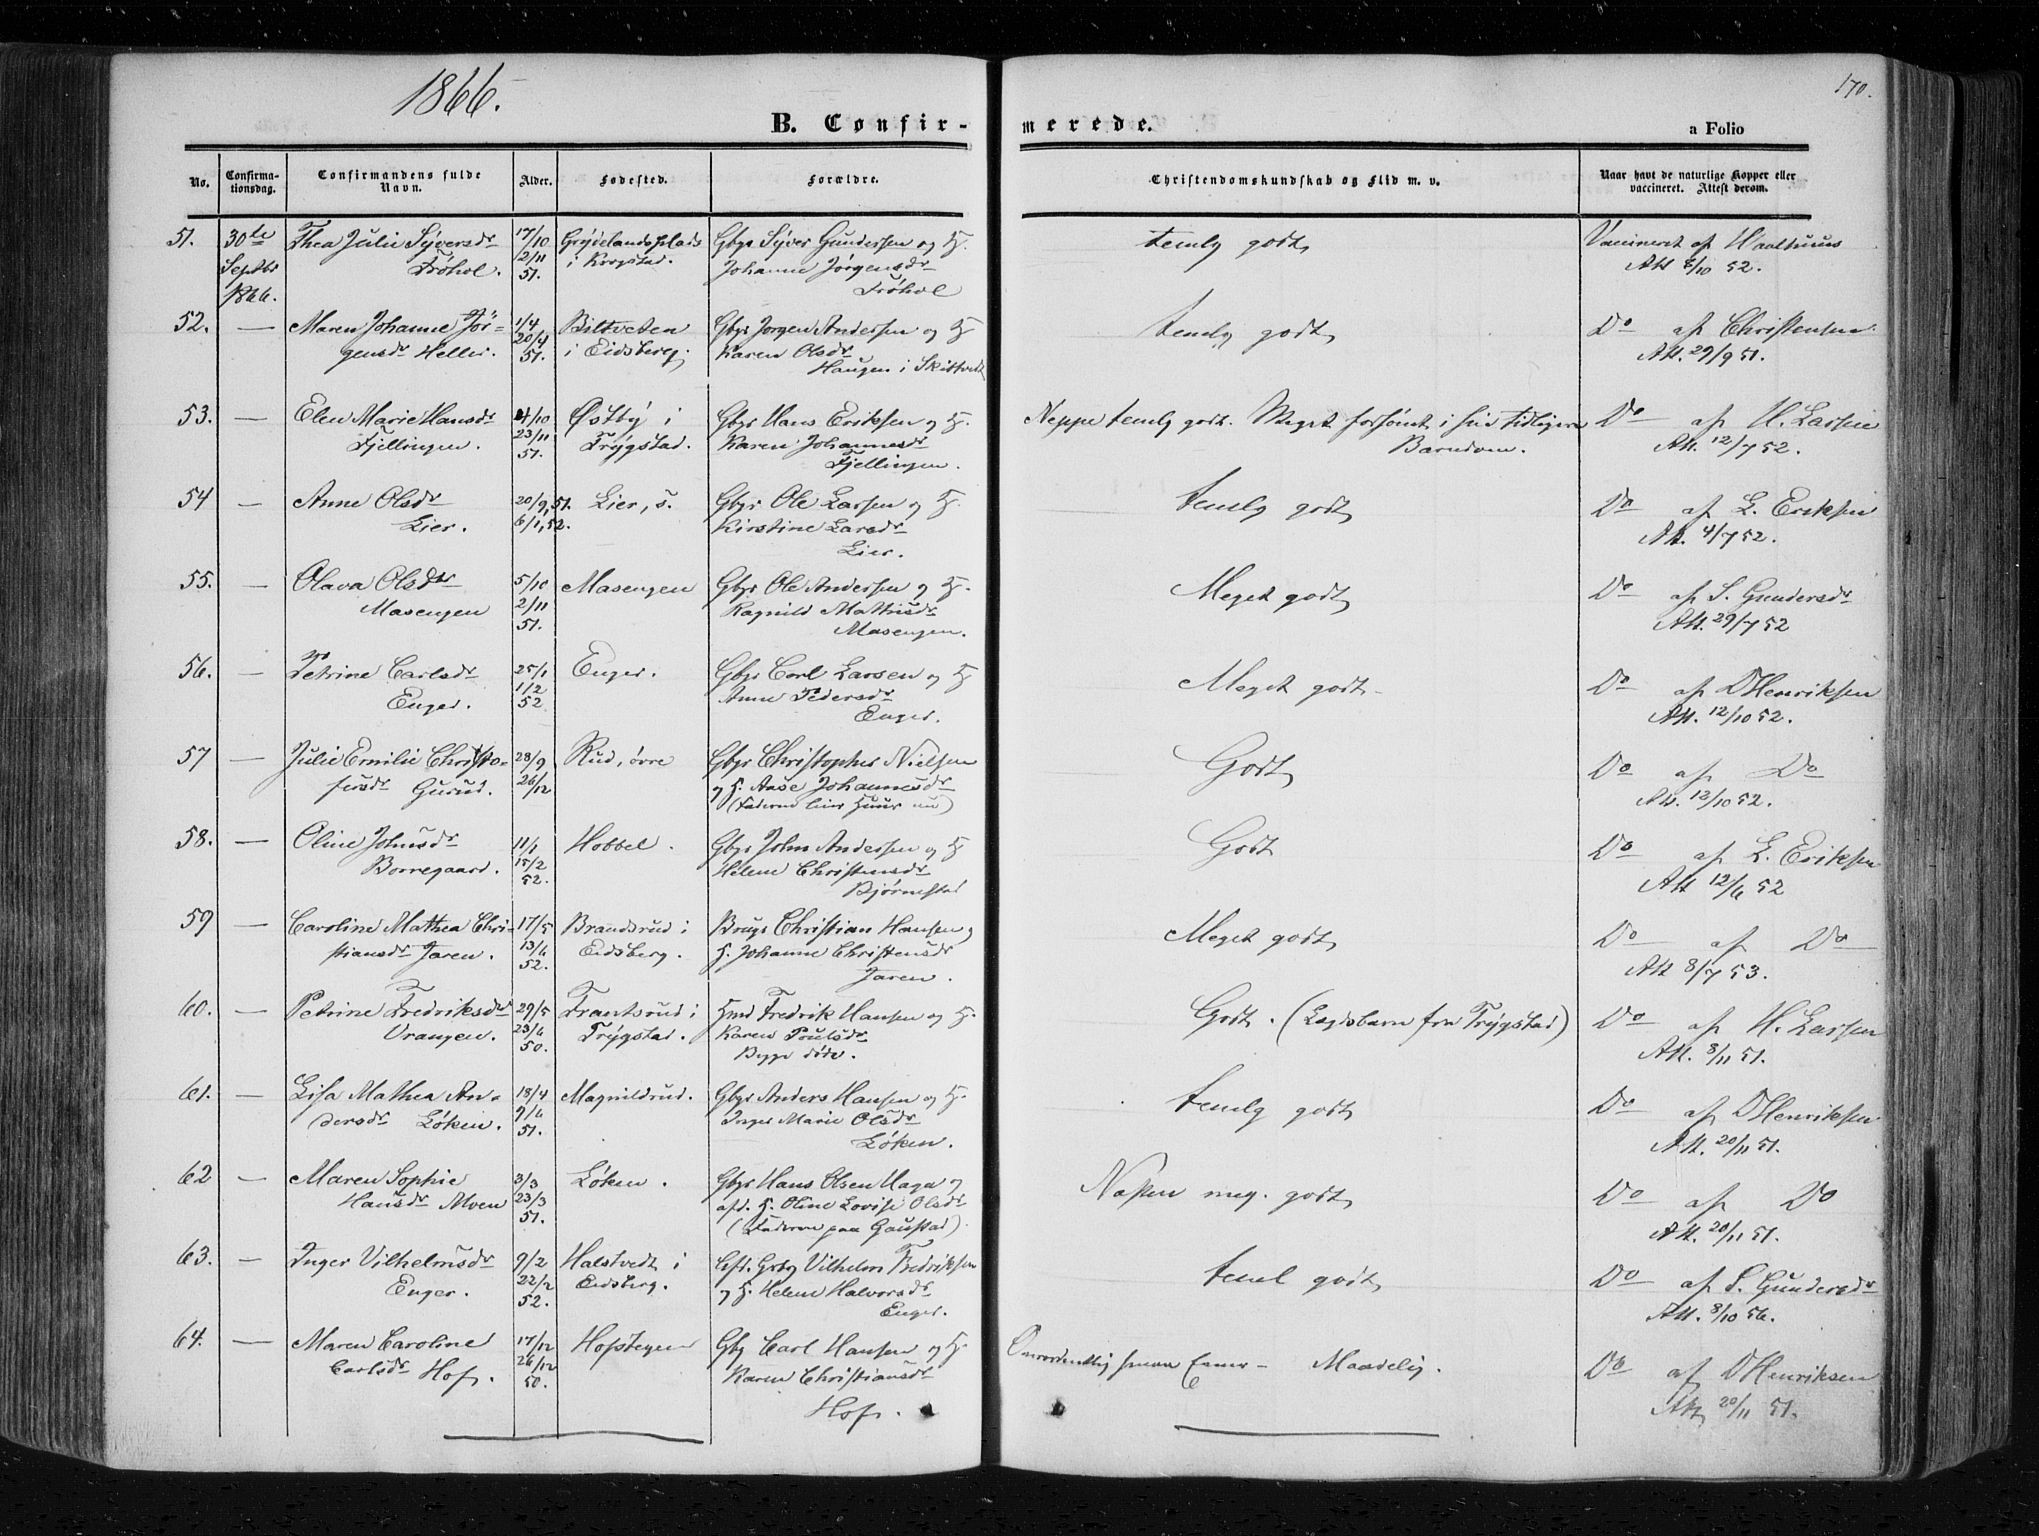 1866.
170.
B. Confir-
merede.
a Folio
No.
Confirma-
tionsdag.
Confirmandens fulde
Navn.
Alder.
Fødested.
Forældre.
Christendomskundskab og Flid m. v.
Naar havt de naturlige Kopper eller
vaccineret. Attest derom.
51. 30te Thea Julie Syversdr 17/10 Grydelandsplads Gbr Syver Gundersen og H. temly godt Vaccineret af
Septbr Frøhol. 2/11 i Krogstad. Johanne Jørgensdr Att 8/10 52.
1866. 51. Frøhol
52. — Maren Johanne Jør- 1/4 Biltveten Gbr Jørgen Andersen og H temly godt Do af Christensen
gensdr Heller. 20/4 i Eidsberg. Karen Olsdr Att. 29/9 51.
51. Haugen i Skiptvedt
53. — Elen Marie Hansdr 4/10 Østby i Gbr Hans Eriksen og H. Neppe temly godt. Meget forsømt i sin tidligere Do af H. Larsen
Fjellingen. 23/11 Trygstad. Karen Johannesdr Barndom. Att. 12/7 52.
51. Fjellingen.
54 — Anne Olsdr 20/9, 51. Lier, s. Gbr Ole Larsen og H. temly godt Do af L. Eriksen
Lier. 6/1, 52. Kirstine Larsdr Att. 4/7 52.
Lier.
55. — Olava Olsdtr 5/10 Masengen Gbr Ole Andersen og H. Meget godt Do af S. Gundersdr
Masengen 2/11 Ragnild Mathisdr Att. 29/7 52
51. Masengen.
56. — Petrine Carlsdr 25/1 Enger. Gbr Carl Larsen og H Meget godt Do af DHenriksen
Enger. 1/2 Anne Pedersdr Att. 12/10 52.
52 Enger.
57 — Julie Emilie Christo- 28/9 Rud, øvre Gbr Christopher Nielsen Godt Do af Do
fersdr Gurud. 26/12 og H. Aase Johannesdr Att. 12/10 52.
58. — Oline Johnsdr 11/1 Hobbel. Gbr John Andersen og H Godt Do af L. Eriksen
Borregaard. 15/2 Helene Christensdr Att 12/6 52
52. Bjørnestad
59 — Caroline Mathea Chri- 17/5 Brandsrud i Brugr Christian Hansen og Meget godt Do af Do
stiansdr Jaren. 13/6 Eidsberg. H. Johanne Christensdr Att 8/7 53.
52. Jaren.
60. — Petrine Fredriksdr 29/5 Frantsrud i Hmd Fredrik Hansen og H. Godt. (Lægdsbarn fra Trygstad) Do af H. Larsen
Vrangen. 23/6 Trygstad. Karen Poulsdr Att. 8/11 51.
50. Begge døde.
61. — Lisa Mathea An- 18/4 Magnildrud. Gbr Anders Hansen og H. temly godt Do af DHenriksen
dersdr Løken. 9/6 Inger Marie Olsdr Att. 20/11 51.
51. Løken.
62 — Maren Sophie 3/3 Løken. Gbr Hans Olsen Haga og Næsten meg. godt Do af Do
Hansdr Moen 23/3 afd. H. Oline Lovise Olsdr Att. 20/11 51.
51. (Faderen paa Gaustad).
63. — Inger Vilhelmsdr 9/2 Halstvedt i Gbr Vilhelm Fredriksen teml godt Do af S. Gundersdr
Enger. 22/2 Eidsberg. og H. Helene Halvorsdr Att. 8/10 56.
52. Enger.
64. — Maren Caroline 17/12 Hofstegen Gbr Carl Hansen og H Overordentlig smaa Evner — Maadelig. Do af DHenriksen
Carlsdr Hof. 26/12 Karen Christiansdr Att 20/11 51.
50. Hof.